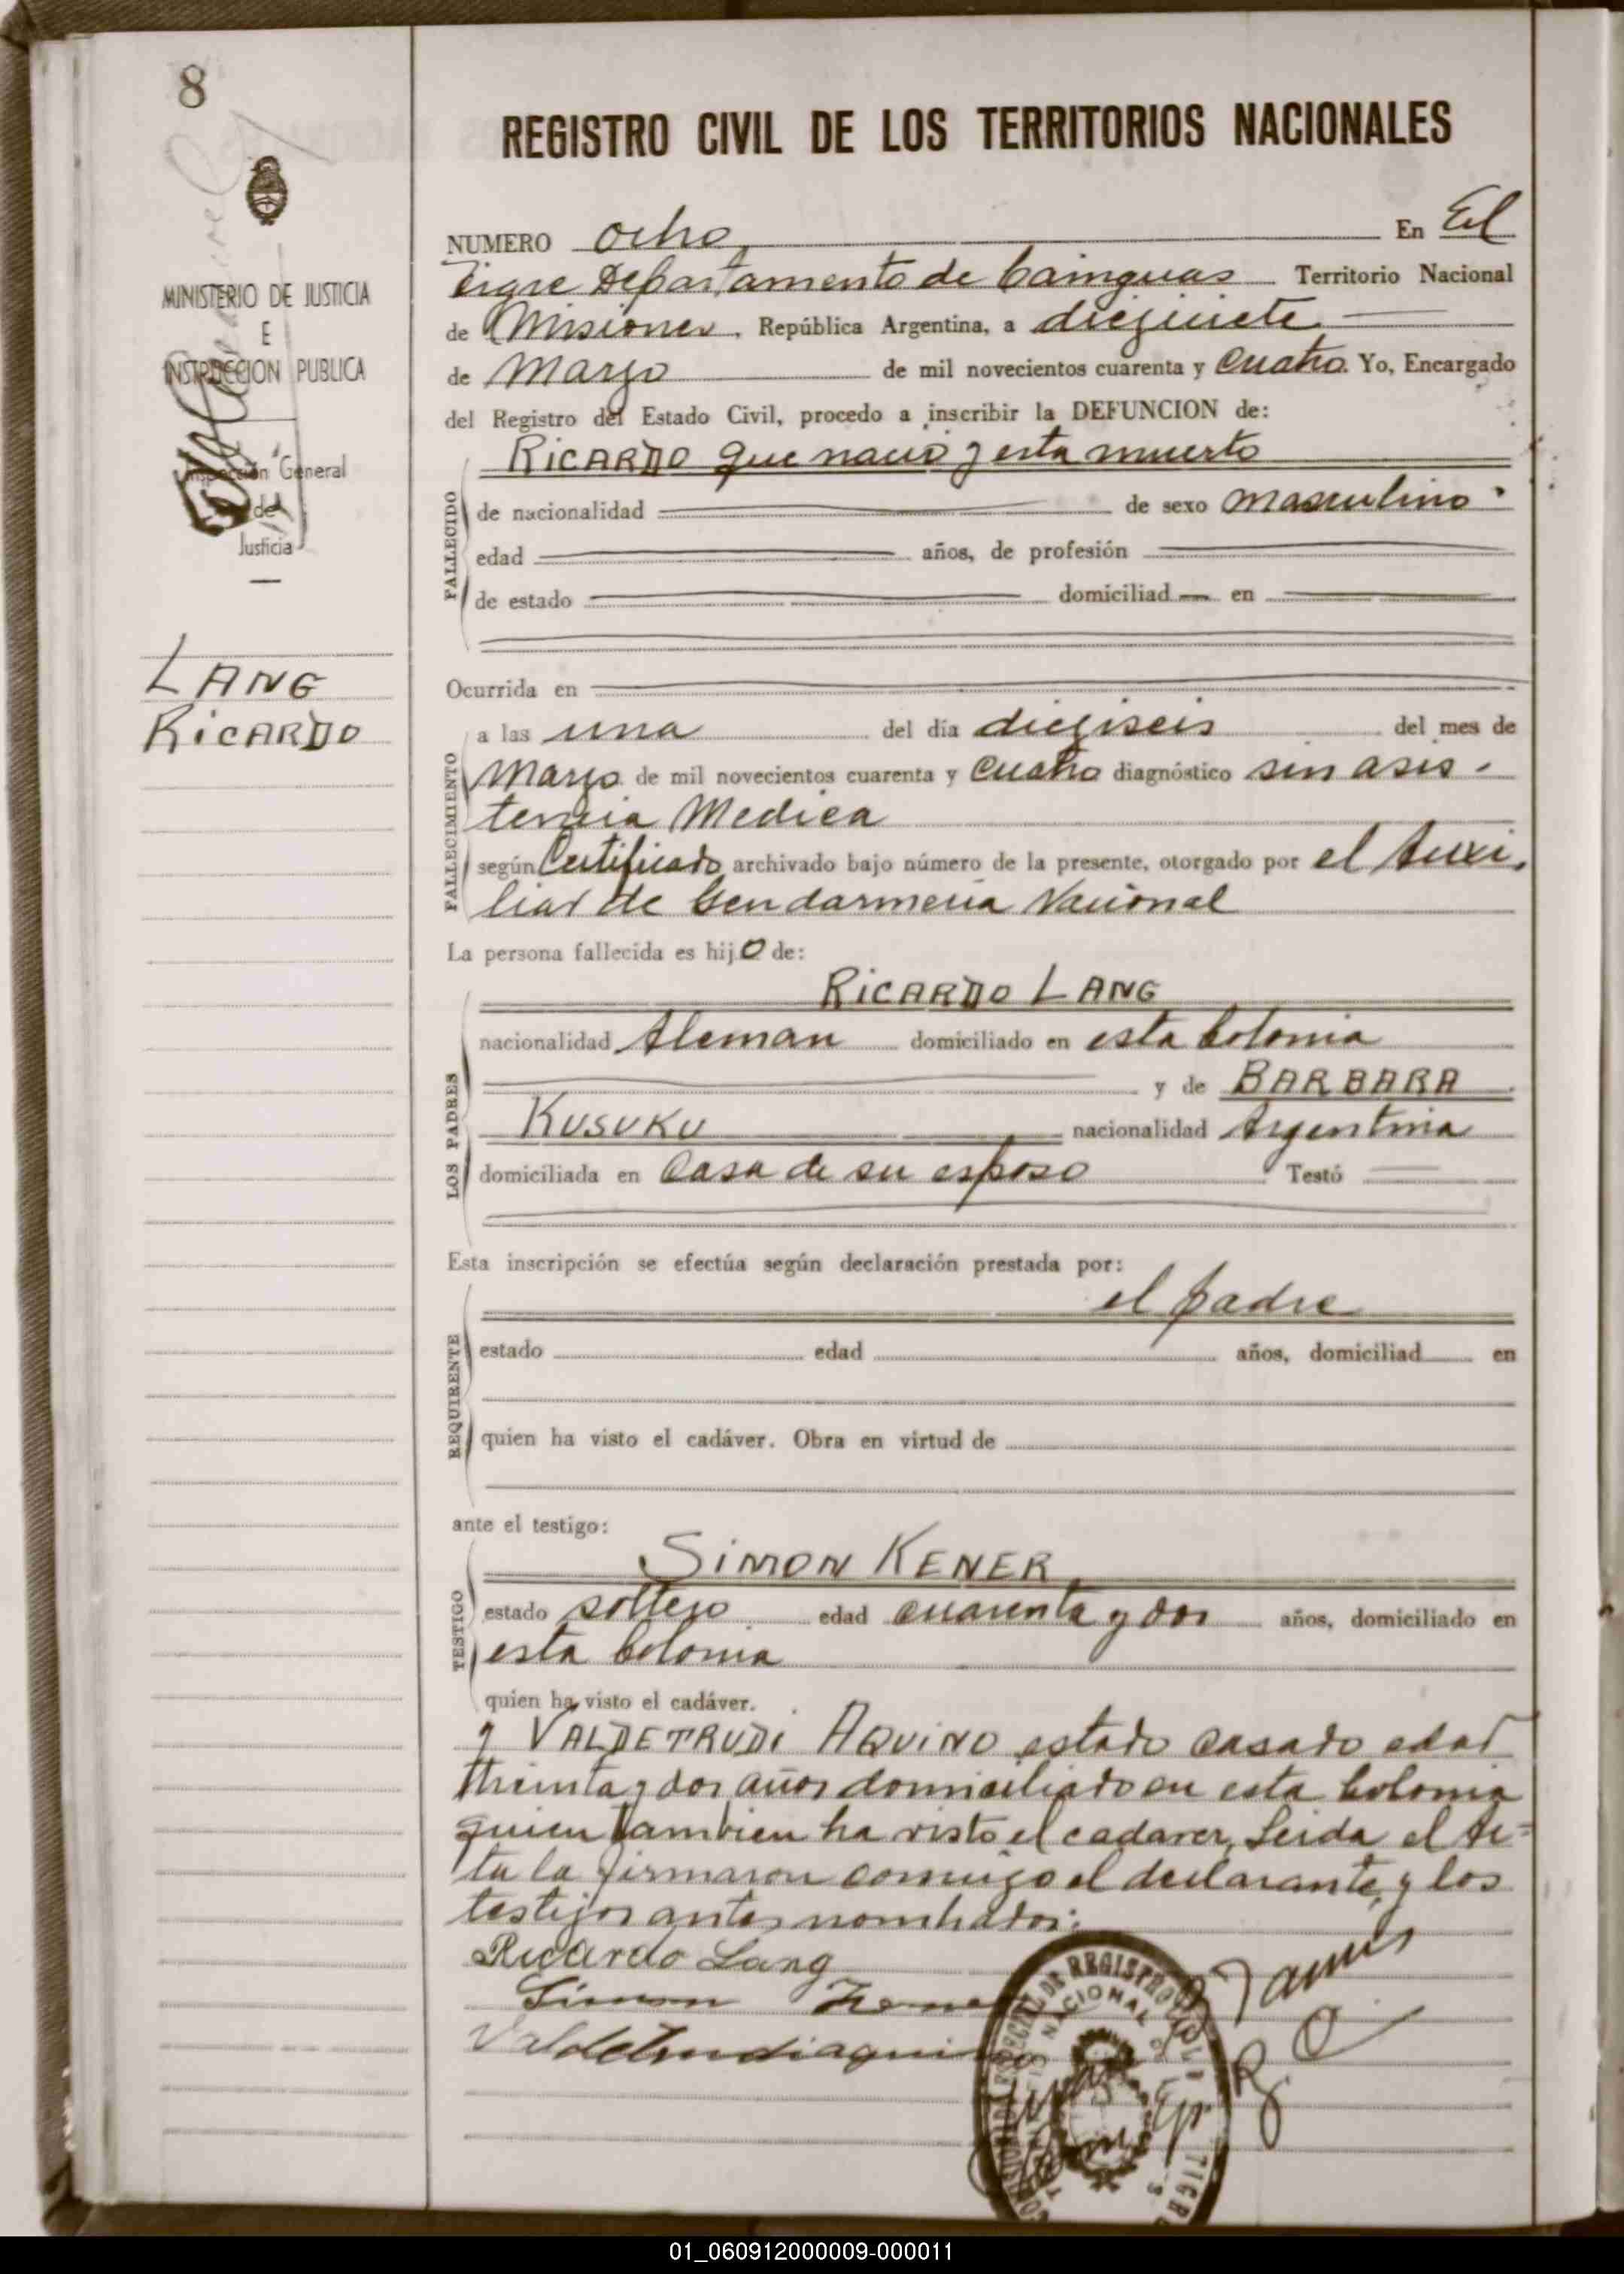 8
MINISTERIO DE JUSTICIA
E
INSTRUCCION PUBLICA
Inspección General
de
Justicia
LANG
RICARDO
REGISTRO CIVIL DE LOS TERRITORIOS NACIONALES
NUMERO Ocho En El
Tigre Departamento de Cainguas Territorio Nacional
de Misiones, República Argentina, a diezisiete
de Marzo de mil novecientos cuarenta y cuatro. Yo, Encargado
del Registro del Estado Civil, procedo a inscribir la DEFUNCION de:
RICARDO que nació y esta muerto
FALLECIDO
de nacionalidad de sexo masculino
edad años, de profesión
de estado domiciliad en
Ocurrida en
FALLECIMIENTO
a las una del día dieziseis del mes de
Marzo de mil novecientos cuarenta y cuatro diagnóstico sin asis-
tencia Medica
según Certificado archivado bajo número de la presente, otorgado por el Auxi-
liar de Gendarmeria Nacional
La persona fallecida es hijo de:
LOS PADRES
RICARDO LANG
nacionalidad Aleman domiciliado en esta Colonia
y de BARBARA
KUSUKU nacionalidad Argentina
domiciliada en Casa de su esposo Testó
Esta inscripción se efectúa según declaración prestada por:
REQUIRENTE
el padre
estado edad años, domiciliad en
quien ha visto el cadáver. Obra en virtud de
ante el testigo:
TESTIGO
SIMON KENER
estado soltero edad cuarenta y dos años, domiciliado en
esta Colonia
quien ha visto el cadáver.
y VALDETRUDI AQUINO estado casado edad
threinta y dos años domiciliado en esta Colonia
quien tambien ha visto el cadaver, Leida el Ac-
ta la firmaron conmigo el declarante, y los
testijos antes nombrados:
Ricardo Lang
Simon
Valdetrudiaquino
REGISTRO CIVIL
NACIONAL
TIGRE
01_060912000009-000011